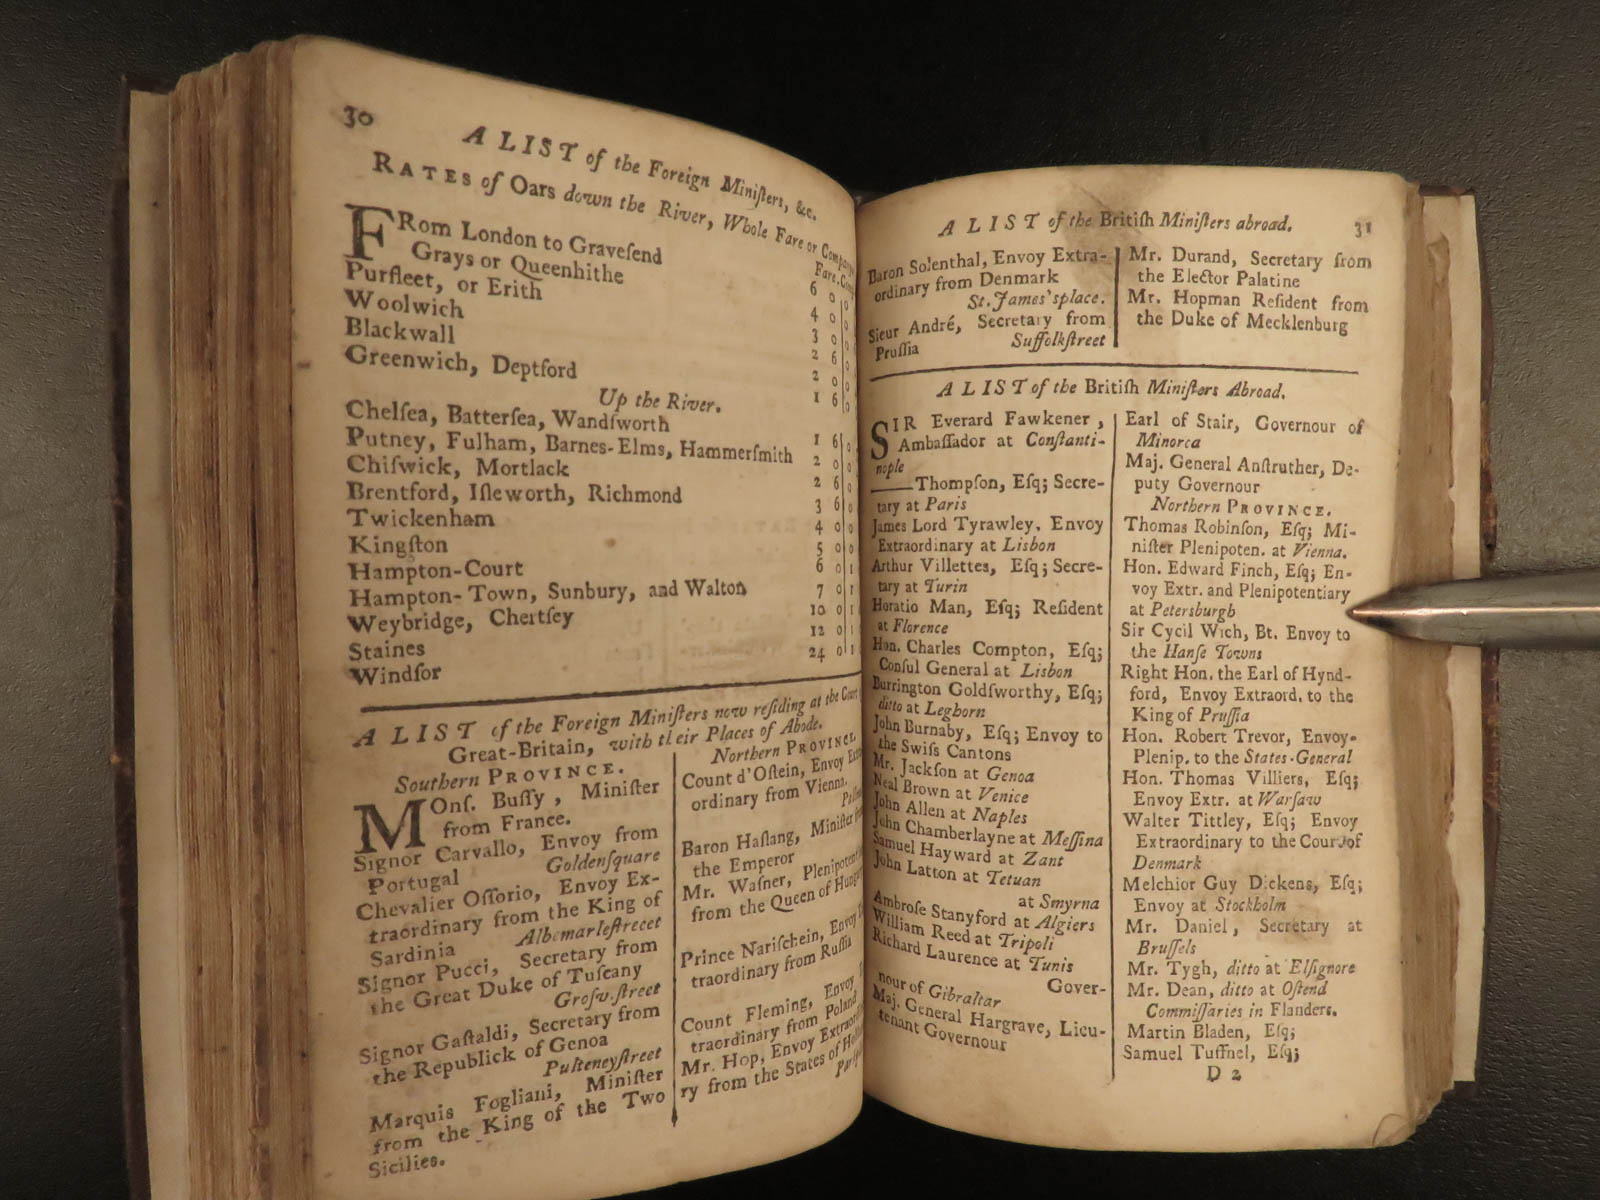 30
A LIST of the Foreign Miniſters, &c.
RATES of Oars down the River, Whole Fare or
Fare.
FRom London to Graveſend
Grays or Queenhithe 6 0
Purfleet, or Erith 4 0
Woolwich 3 0
Blackwall 2 6
Greenwich, Deptford 2 0
1 6
Up the River.
Chelſea, Batterſea, Wandſworth 1 6
Putney, Fulham, Barnes-Elms, Hammerſmith 2 0
Chiſwick, Mortlack 2 6
Brentford, Iſleworth, Richmond 3 6
Twickenham 4 0
Kingſton 5 0
Hampton-Court 6 0
Hampton-Town, Sunbury, and Walton 7 0
Weybridge, Chertſey 10 0
Staines 12 0
Windſor 24 0
A LIST of the Foreign Miniſters now reſiding at the Court
Great-Britain, with their Places of Abode.
Southern PROVINCE.
MOnſ. Buſſy, Miniſter
from France.
Signor Carvallo, Envoy from
Portugal Goldenſquare
Chevalier Oſſorio, Envoy Ex-
traordinary from the King of
Sardinia Albemarleſtreet
Signor Pucci, Secretary from
the Great Duke of Tuſcany
Groſv.ſtreet
Signor Gaſtaldi, Secretary from
the Republick of Genoa
Pulteneyſtreet
Marquis Fogliani, Miniſter
from the King of the Two
Sicilies.
Northern PROVINCE.
Count d'Oſtein, Envoy
ordinary from Vienna.
Baron Haſlang, Miniſter
the Emperor
Mr. Waſner,
from the Queen of
Prince Nariſchein, Envoy
traordinary from Ruſſia
Count Fleming, Envoy
traordinary from Poland
Mr. Hop, Envoy
ry from the States of
A LIST of the Britiſh Miniſters abroad. 31
Baron Solenthal, Envoy Extra-
ordinary from Denmark
St. James'splace.
Sieur André, Secretary from
Pruſſia Suffolkſtreet
Mr. Durand, Secretary from
the Elector Palatine
Mr. Hopman Reſident from
the Duke of Mecklenburg
A LIST of the Britiſh Miniſters Abroad.
SIR Everard Fawkener,
Ambaſſador at Conſtanti-
nople
——Thompſon, Eſq; Secre-
tary at Paris
James Lord Tyrawley, Envoy
Extraordinary at Lisbon
Arthur Villettes, Eſq; Secre-
tary at Turin
Horatio Man, Eſq; Reſident
at Florence
Hon. Charles Compton, Eſq;
Conſul General at Lisbon
Burrington Goldſworthy, Eſq;
ditto at Leghorn
John Burnaby, Eſq; Envoy to
the Swiſs Cantons
Mr. Jackſon at Genoa
Neal Brown at Venice
John Allen at Naples
John Chamberlayne at Meſſina
Samuel Hayward at Zant
John Latton at Tetuan
at Smyrna
Ambroſe Stanyford at Algiers
William Reed at Tripoli
Richard Laurence at Tunis
Gover-
nour of Gibraltar
Maj. General Hargrave, Lieu-
tenant Governour
Earl of Stair, Governour of
Minorca
Maj. General Anſtruther, De-
puty Governour
Northern PROVINCE.
Thomas Robinſon, Eſq; Mi-
niſter Plenipoten. at Vienna.
Hon. Edward Finch, Eſq; En-
voy Extr. and Plenipotentiary
at Petersburgh
Sir Cycil Wich, Bt. Envoy to
the Hanſe Towns
Right Hon. the Earl of Hynd-
ford, Envoy Extraord. to the
King of Pruſſia
Hon. Robert Trevor, Envoy-
Plenip. to the States-General
Hon. Thomas Villiers, Eſq;
Envoy Extr. at Warſaw
Walter Tittley, Eſq; Envoy
Extraordinary to the Court of
Denmark
Melchior Guy Dickens, Eſq;
Envoy at Stockholm
Mr. Daniel, Secretary at
Bruſſels
Mr. Tygh, ditto at Elſignore
Mr. Dean, ditto at Oſtend
Commiſſaries in Flanders.
Martin Bladen, Eſq;
Samuel Tuffnel, Eſq;
D 2